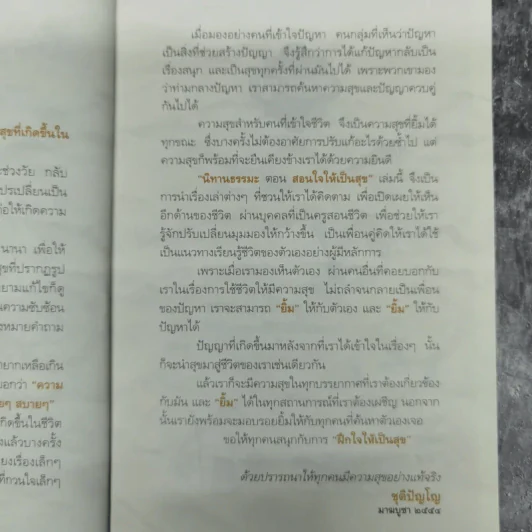 สุขที่เกิดขึ้นใน
ช่วงวัย กลับ
ปรเปลี่ยนเป็น
ก่อให้เกิดความ
นานา เพื่อให้
สุขที่ปรากฏรูป
ยามแก้ไขก็ดู
ความซับซ้อน
ะหมายคำถาม
ยากเหลือเกิน
บอกว่า "ความ
ๆ สบายๆ"
กิดขึ้นในชีวิต
แล้วบางครั้ง
ยงเรื่องเล็กๆ
ที่กวนใจเล็กๆ
เมื่อมองอย่างคนที่เข้าใจปัญหา คนกลุ่มที่เห็นว่าปัญหา
เป็นสิ่งที่ช่วยสร้างปัญญา จึงรู้สึกว่าการได้แก้ปัญหากลับเป็น
เรื่องสนุก และเป็นสุขทุกครั้งที่ผ่านมันไปได้ เพราะพวกเขามอง
ว่าท่ามกลางปัญหา เราสามารถค้นหาความสุขและปัญญาควบคู่
กันไปได้
ความสุขสำหรับคนที่เข้าใจชีวิต จึงเป็นความสุขที่ยิ้มได้
ทุกขณะ ซึ่งบางครั้งไม่ต้องอาศัยการปรับแก้อะไรด้วยซ้ำไป แต่
ความสุขก็พร้อมที่จะยืนเคียงข้างเราได้ด้วยความยินดี
"นิทานธรรมะ ตอน สอนใจให้เป็นสุข" เล่มนี้ จึงเป็น
การนำเรื่องเล่าต่างๆ ที่ชวนให้เราได้คิดตาม เพื่อเปิดเผยให้เห็น
อีกด้านของชีวิต ผ่านบุคคลที่เป็นครูสอนชีวิต เพื่อช่วยให้เรา
รู้จักปรับเปลี่ยนมุมมองให้กว้างขึ้น เป็นเพื่อนคู่คิดให้เราได้ใช้
เป็นแนวทางเรียนรู้ชีวิตของตัวเองอย่างผู้มีหลักการ
เพราะเมื่อเรามองเห็นตัวเอง ผ่านคนอื่นที่คอยบอกกับ
เราในเรื่องการใช้ชีวิตให้มีความสุข ไม่ถลำจนกลายเป็นเพื่อน
ของปัญหา เราจะสามารถ "ยิ้ม" ให้กับตัวเอง และ "ยิ้ม" ให้กับ
ปัญหาได้
ปัญญาที่เกิดขึ้นมาหลังจากที่เราได้เข้าใจในเรื่องๆ นั้น
ก็จะนำสุขมาสู่ชีวิตของเราเช่นเดียวกัน
แล้วเราก็จะมีความสุขในทุกบรรยากาศที่เราต้องเกี่ยวข้อง
กับมัน และ "ยิ้ม" ได้ในทุกสถานการณ์ที่เราต้องเผชิญ นอกจาก
นั้นเรายังพร้อมจะมอบรอยยิ้มให้กับทุกคนที่ค้นหาตัวเองเจอ
ขอให้ทุกคนสนุกกับการ "ฝึกใจให้เป็นสุข"
ด้วยปรารถนาให้ทุกคนมีความสุขอย่างแท้จริง
ชุติปัญโญ
มาฆบูชา ๒๕๕๔